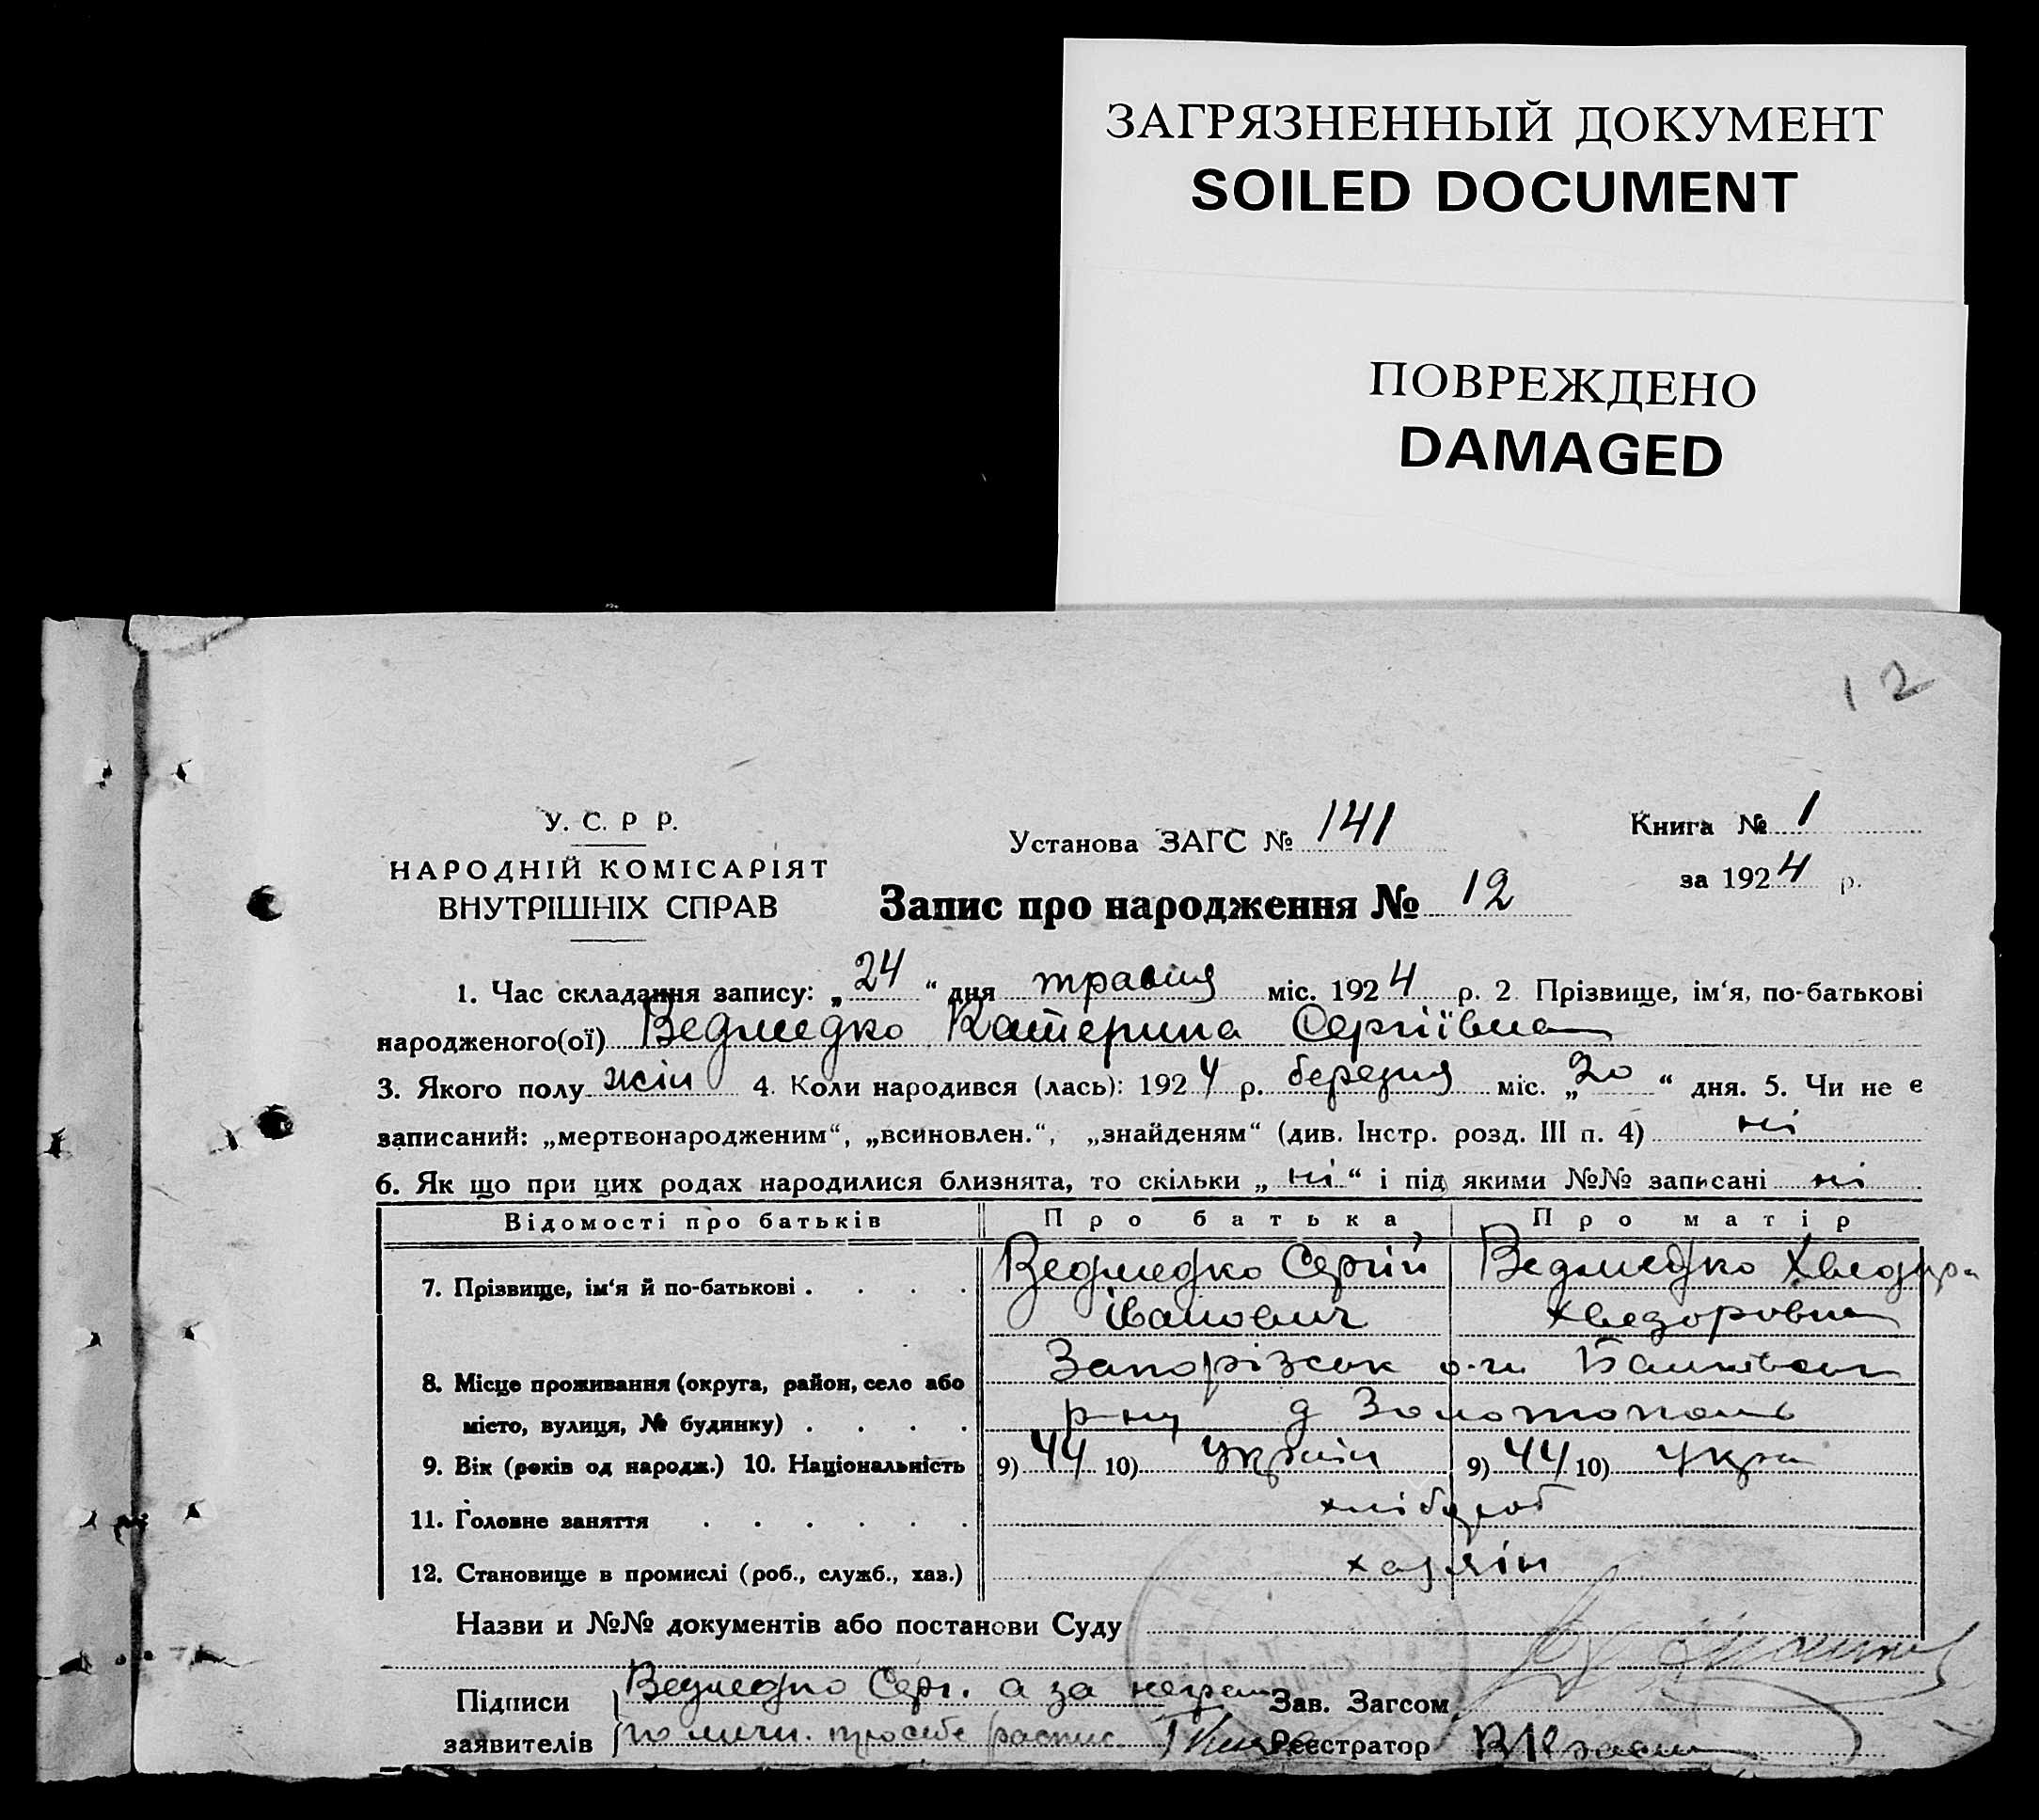 ЗАГРЯЗНЕННЫЙ ДОКУМЕНТ
SOILED DOCUMENT
ПОВРЕЖДЕНО
DAMAGED
12
У. С. Р Р.
НАРОДНІЙ КОМІСАРІЯТ
ВНУТРІШНІХ СПРАВ
Установа ЗАГС № 141
Книга № 1
за 1924 р.
Запис про народження № 12
1. Час складання запису: „24“ дня травня міс. 1924 р. 2. Прізвище, ім‘я, по-батькові
народженого(ої) Ведмедко Катерина Сергіївна
3. Якого полу жін 4. Коли народився (лась): 1924 р. березня міс. „20“ дня. 5. Чи не є
записаний: „мертвонародженим“, „всиновлен.“, „знайденям“ (див. Інстр. розд. III п. 4) ні
6. Як що при цих родах народилися близнята, то скільки „ні“ і під якими №№ записані ні
Відомості про батьків Про батька Про матір
7. Прізвище, ім‘я й по-батькові . . . . Ведмедко Сергій Ведмедко Хведора
Іванович Хведоровна
8. Місце проживання (округа, район, село або Запорізськ о-ги
місто, вулиця, № будинку) . . . . р-ну д Золотополь
9. Вік (років од народж.) 10. Національність 9) 44 10) Україн 9) 44 10) Укра
11. Головне заняття . . . . . . хлібороб
12. Становище в промислі (роб., служб., хаз.) хазяїн
Назви и №№ документів або постанови Суду
Підписи Ведмедко Серг. а за неграм Зав. Загсом
заявителів по личн. просьбе распис. Реєстратор